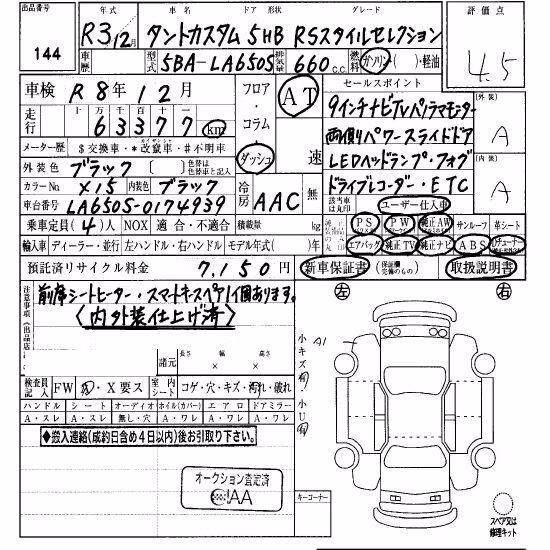 出品番号
144
年式
R3/12月
車歴
車名
ドア 形状
グレード
タントカスタム 5HB RSスタイルセレクション
型式
5BA-LA650S
排気量
660 c.c.
燃料
ガソリン( )・軽油
評価点
4.5
車検 R8年12月
走行
十 万 千 百 十 一
63377 km
メーター歴 $交換車・*改竄車・#不明車
外装色 ブラック
色替は色替車と記入
カラーNo. X15
内装色 ブラック
車台番号 LA650S-0174939
乗車定員(4)人
NOX 適合・不適合
積載量 kg
輸入車 ディーラー・並行
左ハンドル・右ハンドル
モデル年式( )年
預託済リサイクル料金 7,150円
フロア・コラム
ダッシュ
AT
速
冷房
AAC
無
セールスポイント
9インチナビTVパノラマモニター
両側パワースライドドア
LEDヘッドランプ・フォグ
ドライブレコーダー・ETC
外装
A
内装
A
該当車は丸印
ユーザー仕入車
PS PW 純正AW サンルーフ 革シート
エアバッグ 純正TV 純正ナビ ABS
新車保証書
取扱説明書
左
右
注意事項(出品店
前席シートヒーター・スマートキースペア1個あります。
〈内外装仕上げ済〉
諸元
長さ 幅 高さ
× ×
検査員記入
FW
・X要ス
室内シート
コゲ・穴・キズ・汚れ・破れ
ハンドル シート オーディオ ホイル(カバー) エアロ ドアミラー
A・スレ A・スレ 無し・穴 A・ワレ A・ワレ A・ワレ
◆搬入連絡(成約日含め4日以内)後お引取り下さい。
オークション査定済
JAA
キーコーナー
小キズ有・小凹有
A1
スペア又は
修理キット